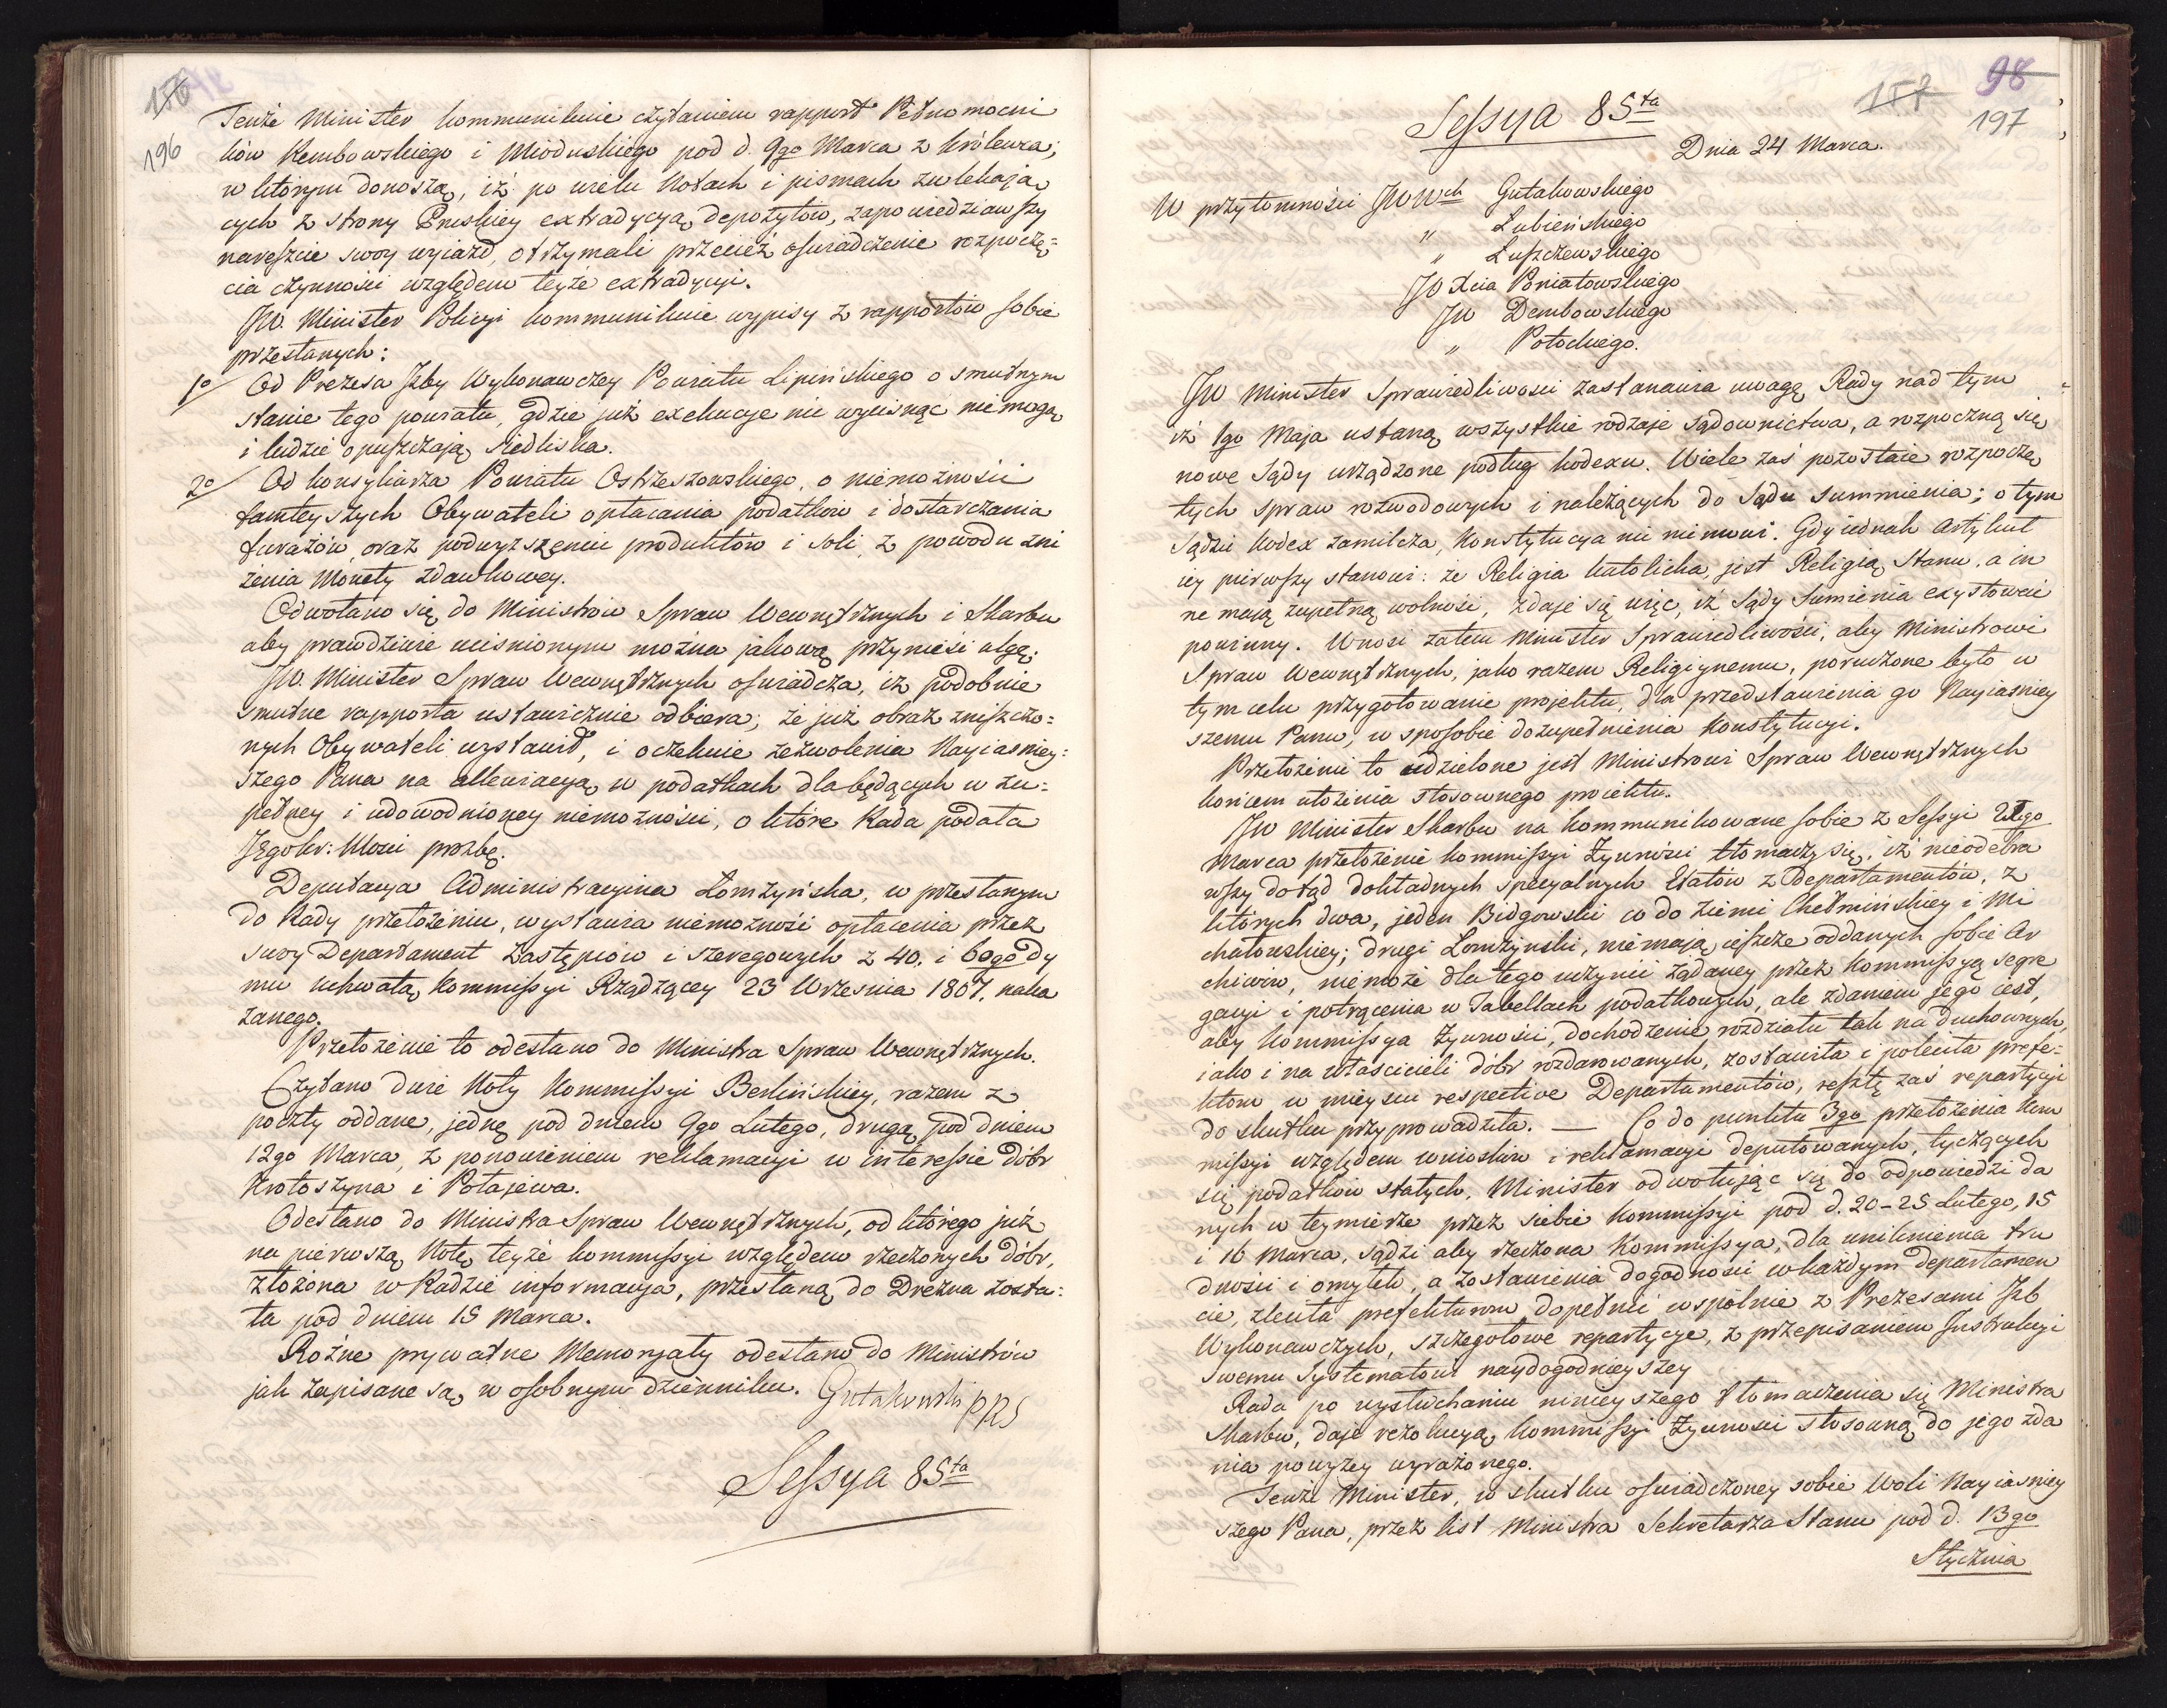 176
196
Tenże Minister kommunikuie czytaniem rapport Pełnomocni
ków Rembowskiego i Mioduskiego pod d. 9go Marca z Królewca;
w którym donoszą, iż po wielu Notach i pismach zwlekaią,
cych z strony Pruskiey extradycyą depozytów, zapowiedziawszy
nareszcie swoy wyiazd, otrzymali przecież oświadczenie rozpoczę=
cia czynności względem teyże extradycyi.
JW. Minister Policyi kommunikuie wypisy z rapportów sobie
przesłanych:
1o/ Od Prezesa Izby Wykonawczey Powiatu Lipińskiego o smutnym
stanie tego powiatu, gdzie już exekucye nic wycisnąć niemogą
i ludzie opuszczaią siedliska.
2o/ Od konsyliarza Powiatu Ostrzeszowskiego, o niemożności
tamteyszych Obywateli opłacania podatków i dostarczania
furażów, oraz podwyższeniu produktów i soli, z powodu zni
żenia Monety zdawkowey.
Odwołano się do Ministrów Spraw Wewnętrznych i Skarbu
aby prawdziwie uciśnionym można jakową przynieść ulgę.
JW. Minister Spraw Wewnętrznych oświadcza, iż podobnie
smutne rapporta ustawicznie odbiera; że już obraz zniszczo=
nych Obywateli wystawił, i oczekuie zezwolenia Nayiaśniey=
szego Pana na allewiacyą w podatkach dla będących w zu=
pełney i udowodnioney niemożności, o które Rada podała
JEgoKr: Mości prozbę.
Deputacya Administracyina Łomżyńska, w przesłanym
do Rady przełożeniu, wystawia niemożność opłacenia przez
swoy Departament Zastępców i szeregowych z 40. i 60go dy
mu uchwałą Kommissyi Rządzącey 23 Września 1807, naka
zanego.
Przełożenie to odesłano do Ministra Spraw Wewnętrznych.
Czytano dwie Noty Kommissyi Berlińskiey, razem z
poczty oddane, jednę pod dniem 9go Lutego, drugą pod dniem
12go Marca, z ponowieniem reklamacyi w interessie dóbr
Krotoszyna i Potajewa.
Odesłano do Ministra Spraw Wewnętrznych, od którego już
na pierwszą Notę teyże kommissyi względem rzeczonych dóbr,
złożona w Radzie informacya, przesłaną do Drezna zosta=
ła pod dniem 15 Marca.
Rożne prywatne Memoryały odesłano do Ministrów
jak zapisane są w osobnym dzienniku. Gutakowski PRS
Sessya 85ta
177 98
197
Sessya 85ta
Dnia 24 Marca.
W przytomności JWWch Gutakowskiego
" Łubieńskiego
" Łuszczewskiego
JO Xcia Poniatowskiego
JW Dembowskiego
" Potockiego.
JW Minister Sprawiedliwości zastanawia uwagę Rady nad tym
iż 1go Maja ustaną wszystkie rodzaje sądownictwa, a rozpoczną się
nowe Sądy urządzone podług kodexu. Wiele zaś pozostaie rozpoczę
tych spraw rozwodowych i należących do Sądu summienia; o tym
Sądzie Kodex zamilcza, Konstytucya nic nie mówi. Gdy iednak Artykuł
iey pierwszy stanowi: że Religia katolicka, jest Religią Stanu, a in
ne mają zupełną wolność, zdaje się więc, iż Sądy Sumienia exystować
powinny. Wnosi zatem Minister Sprawiedliwości, aby Ministrowi
Spraw Wewnętrznych, jako razem Religiynemu, poruczone było w
tym celu przygotowanie projektu, dla przedstawienia go Nayiaśniey
szemu Panu, w sposobie dozupełnienia Konstytucyi.
Przełożenie to udzielone jest Ministrowi Spraw Wewnętrznych
końcem ułożenia stosownego proiektu.
JW Minister Skarbu na kommunikowane sobie z Sessyi 21go
Marca przełożenie kommissyi Żywności tłomaczy się, iż nieodebra
wszy dotąd dokładnych specyalnych Etatów z Departamentów, z
których dwa, jeden Bidgowski co do Ziemi Chełmińskiey i Mi
chałowskiey; drugi Łomżynski, niemają ieszcze oddanych sobie Ar
chiwów, niemoże dla tego uczynić żądaney przez kommissyą segre
gacyi i potrącenia w Tabellach podatkowych, ale zdaniem jego iest,
aby Kommissya Żywności, dochodzenie rozdziału tak na duchownych,
iako i na właścicieli dóbr rozdarowanych, zostawiła i poleciła prefe=
ktom w mieyscu respective Departamentów, resztę zaś repartycyi
do skutku przyprowadziła. — Co do punktu 3go przełożenia Kom
missyi względem wniosków i reklamacyi deputowanych, tyczących
się podatków stałych, Minister odwołując się do odpowiedzi da
nych w teymierze przez siebie Kommissyi pod d. 20–25 Lutego, 15
i 16 Marca, sądzi aby rzeczona Kommissya, dla uniknienia tru
dności i omyłek, a zostawienia dogodności w każdym Departamen
cie, zleciła prefekturom dopełnić wspólnie z Prezesami Izb
Wykonawczych, szczegółowe repartycye, z przepisaniem Instrukcyi
swemu Systematowi naydogodnieyszey
Rada po wysłuchaniu ninieyszego tłomaczenia się Ministra
Skarbu, daje rezolucyą kommissyi Żywności stosowną do jego zda
nia powyżey wyrażonego.
Tenże Minister, w skutku oświadczoney sobie Woli Nayiaśniey
szego Pana, przez list Ministra Sekretarza Stanu pod d. 13go
Stycznia